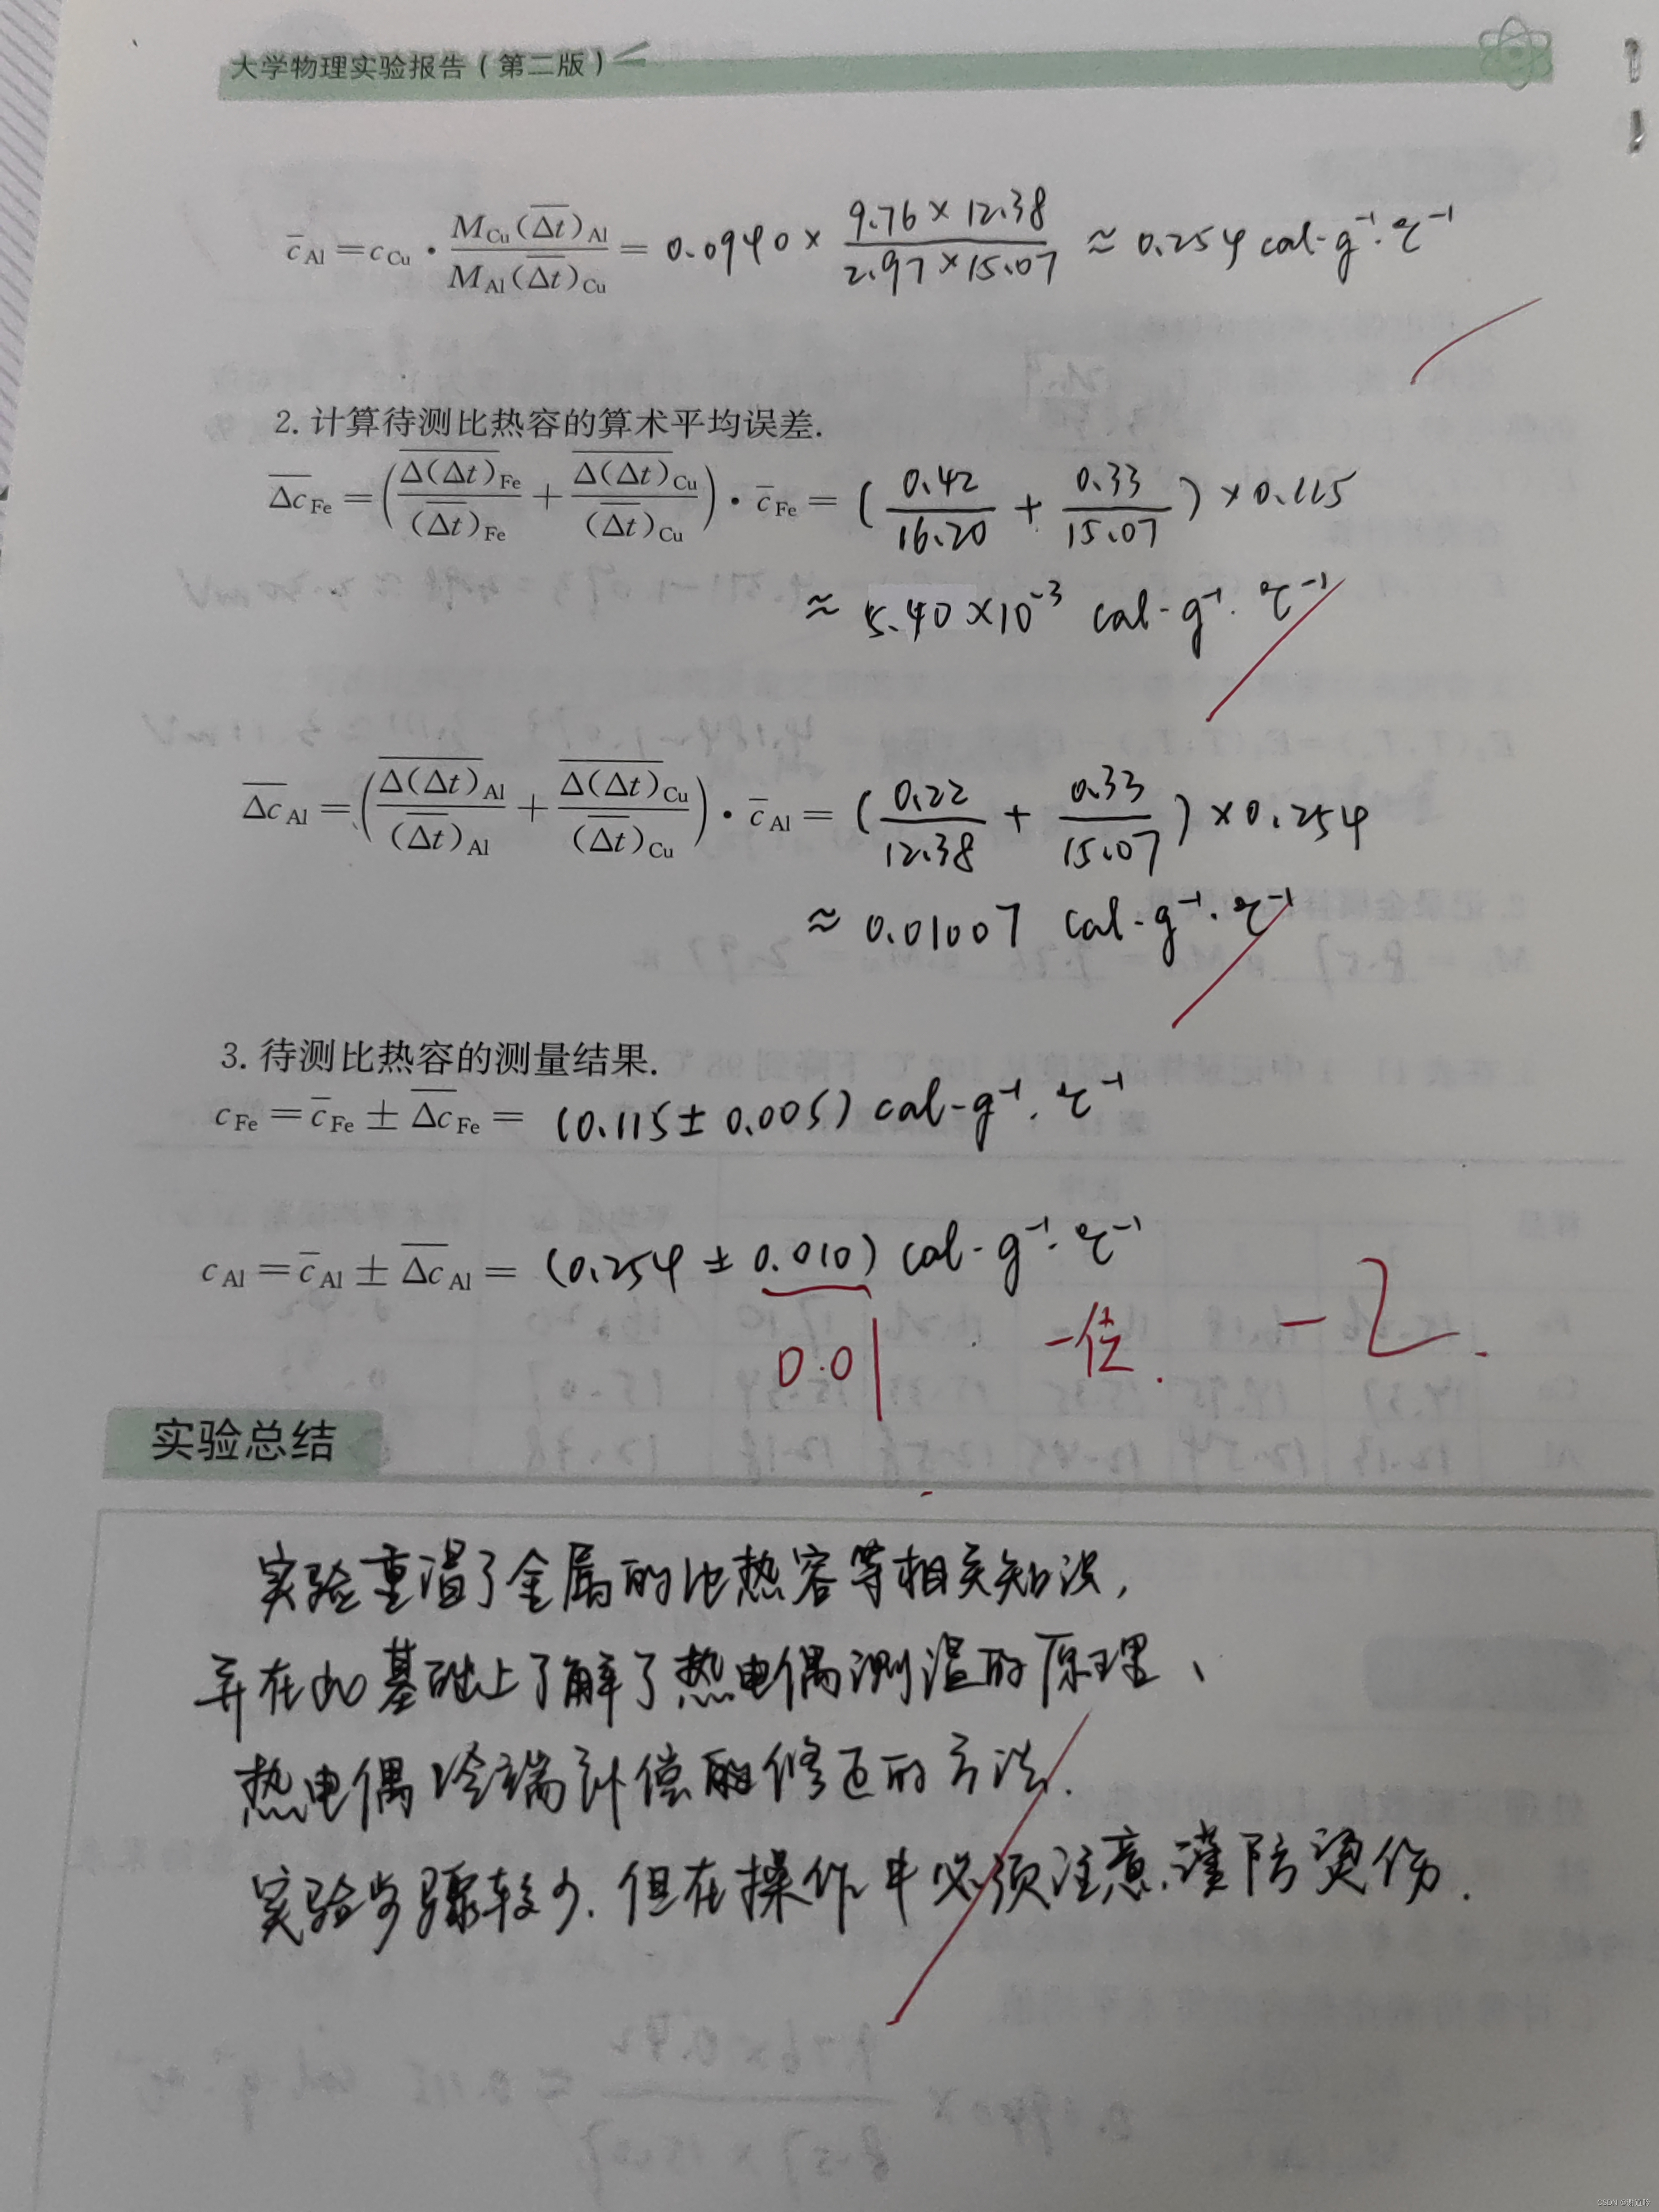 大学物理实验报告（第二版）
c̄_Al = c_Cu · M_Cu(Δt̅)_Al / M_Al(Δt̅)_Cu = 0.0940 × 9.76×12.38 / 2.97×15.07 ≈ 0.254 cal·g⁻¹·℃⁻¹
2. 计算待测比热容的算术平均误差.
Δc̅_Fe = ( Δ(Δt)̅_Fe / (Δt̅)_Fe + Δ(Δt)̅_Cu / (Δt̅)_Cu ) · c̄_Fe = ( 0.42 / 16.20 + 0.33 / 15.07 ) × 0.115
≈ 5.40×10⁻³ cal·g⁻¹·℃⁻¹
Δc̅_Al = ( Δ(Δt)̅_Al / (Δt̅)_Al + Δ(Δt)̅_Cu / (Δt̅)_Cu ) · c̄_Al = ( 0.22 / 12.38 + 0.33 / 15.07 ) × 0.254
≈ 0.01007 cal·g⁻¹·℃⁻¹
3. 待测比热容的测量结果.
c_Fe = c̄_Fe ± Δc̅_Fe = (0.115 ± 0.005) cal·g⁻¹·℃⁻¹
c_Al = c̄_Al ± Δc̅_Al = (0.254 ± 0.010) cal·g⁻¹·℃⁻¹
0.01 一位. -2.
实验总结
实验重温了金属的比热容等相关知识,
并在此基础上了解了热电偶测温的原理、
热电偶冷端补偿的修正的方法.
实验步骤较少.但在操作中必须注意.谨防烫伤.
CSDN @谢道吟